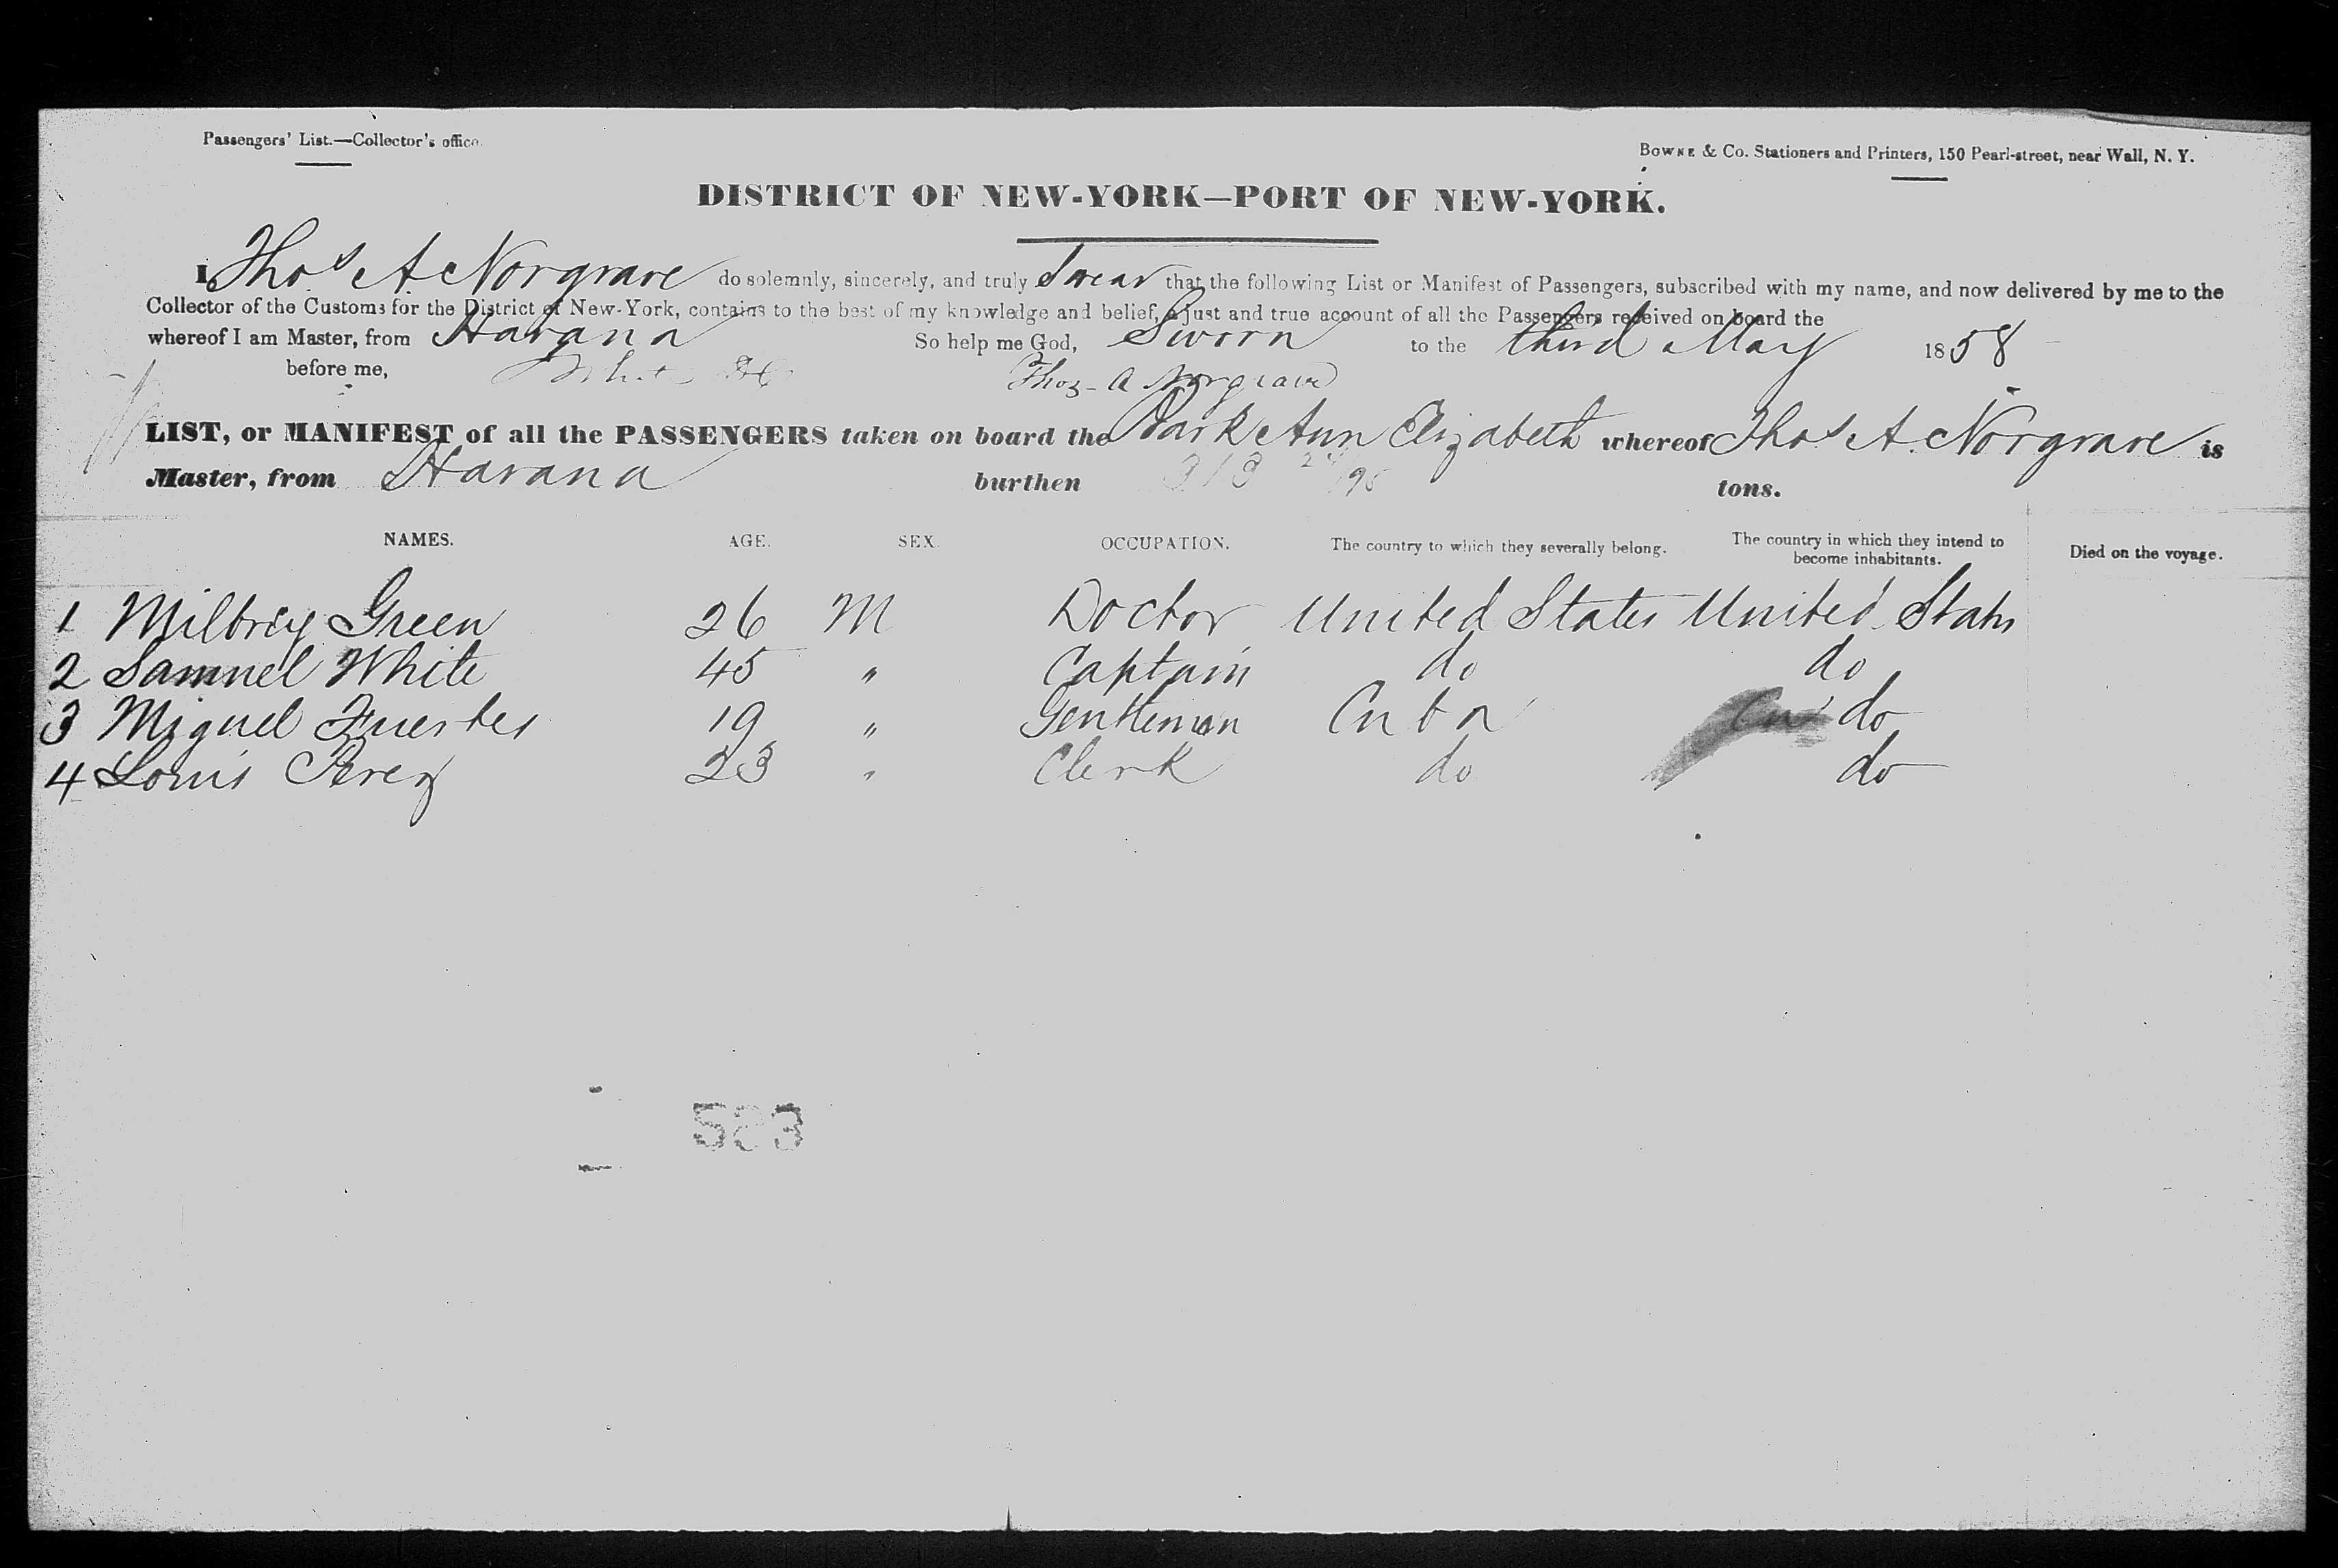 Passengers' List.—Collector's office.
Bowne & Co. Stationers and Printers, 150 Pearl-street, near Wall, N. Y.
DISTRICT OF NEW-YORK—PORT OF NEW-YORK.
I, Thos A. Norgrave do solemnly, sincerely, and truly Swear that the following List or Manifest of Passengers, subscribed with my name, and now delivered by me to the
Collector of the Customs for the District of New-York, contains to the best of my knowledge and belief, a just and true account of all the Passengers received on board the
whereof I am Master, from Havana So help me God, Sworn to the third May 1858
before me, Thos A Norgrave
LIST, or MANIFEST of all the PASSENGERS taken on board the Bark Ann Elizabeth whereof Thos A. Norgrave is
Master, from Havana burthen 313 /95 tons.
NAMES. AGE. SEX. OCCUPATION. The country to which they severally belong. The country in which they intend to become inhabitants. Died on the voyage.
1 Green 26 M Doctor United States United States
2 Samuel White 45 " Captain do do
3 Miguel Fuertes 19 " Gentleman Cuba do
4 Louis Perez 23 " Clerk do do
583